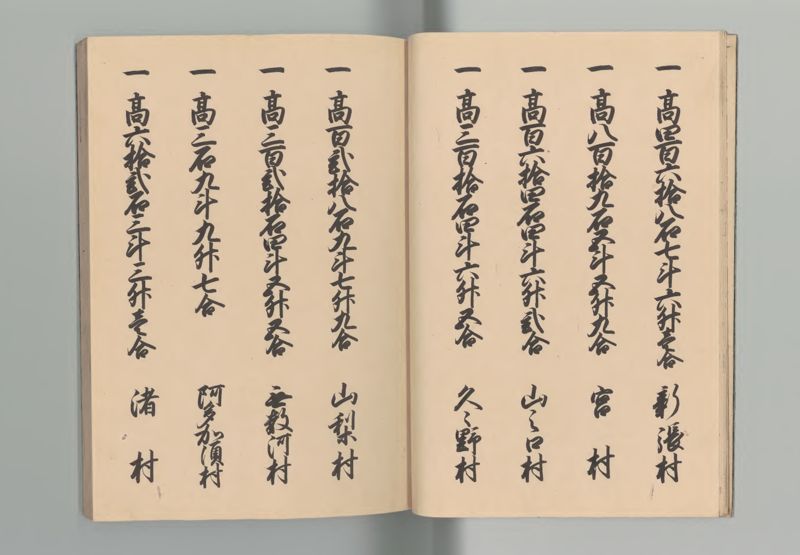 一 高四百六拾八石七斗六升壱合 新張村
一 高八百拾九石五斗五升九合 宮村
一 高百六拾四石四斗六升弐合 山之口村
一 高三百拾石四斗六升五合 久々野村
一 高百弐拾八石九斗七升九合 山梨村
一 高三百弐拾石四斗五升五合 無数河村
一 高三石九斗九升七合 阿多加須村
一 高六拾弐石三斗三升壱合 渚村